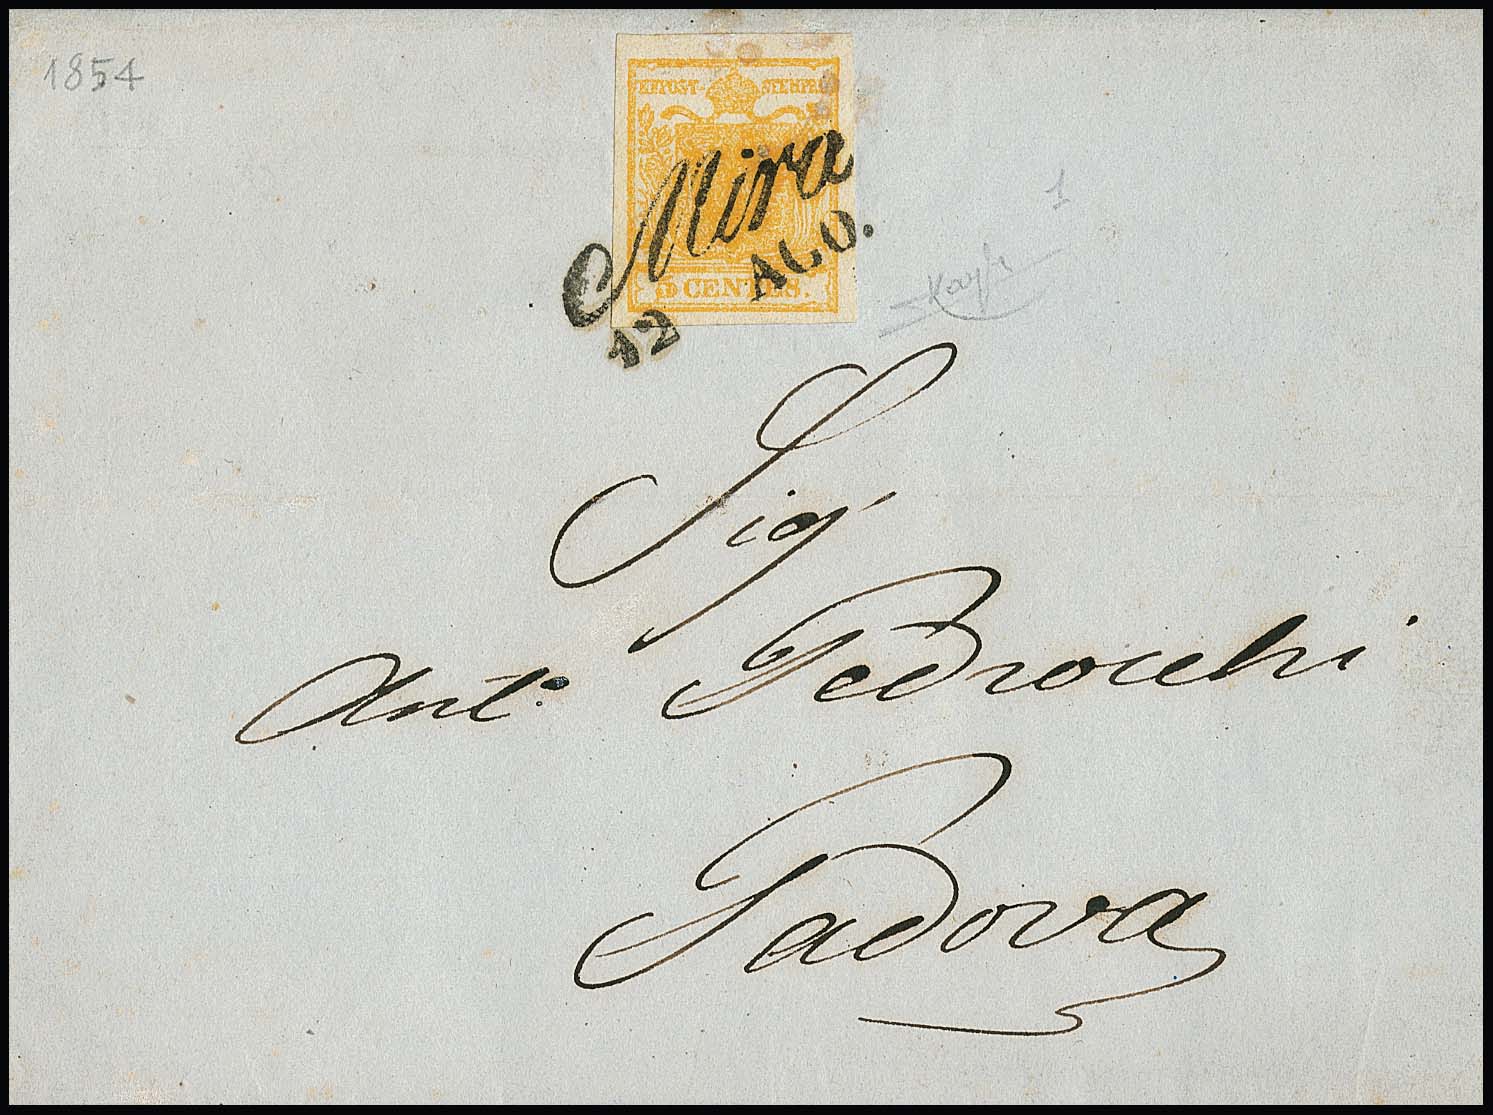 1854
KKPOST-STEMPEL
Mira
12 AGO.
5 CENTES.
1
Sigr
Ant.o Pedrocchi
Padova